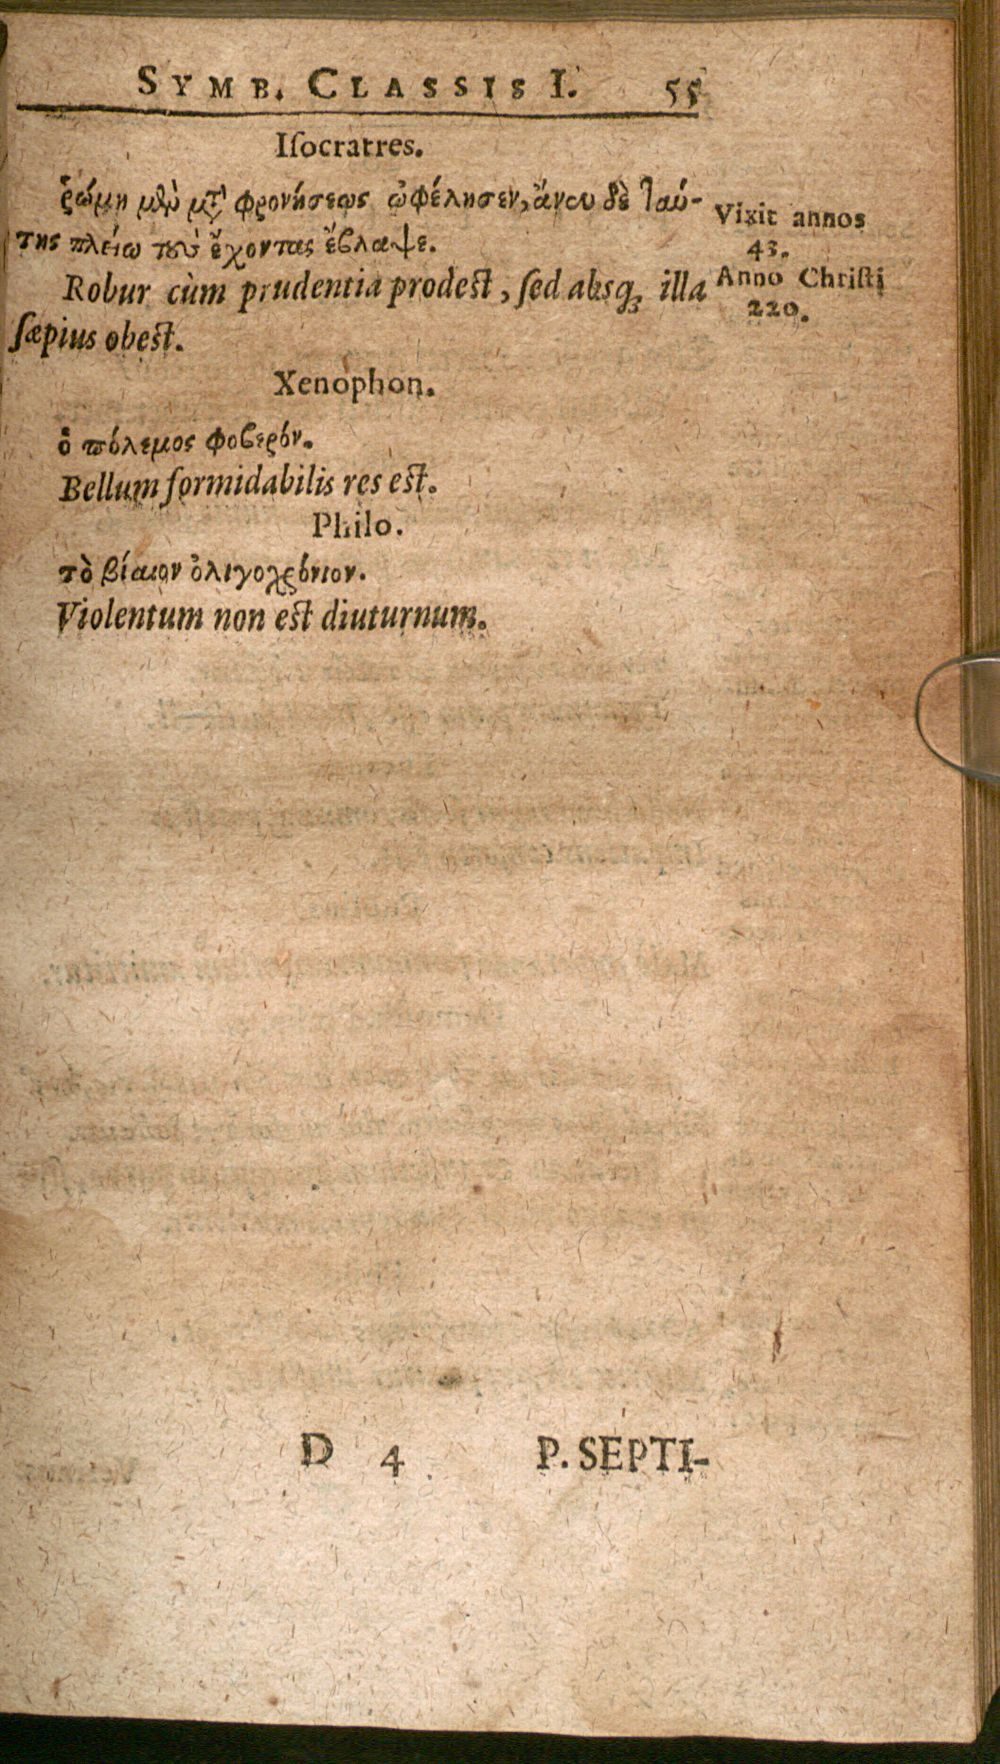 SYMB. CLASSIS I. 55
Iſocratres.
ῥώμη μὲν μετὰ φρονήσεως ὠφέλησεν, ἄνευ δὲ ταύ-
της πλείω τοὺς ἔχοντας ἔβλαψε.
Robur cùm prudentia prodeſt, ſed absq; illa
ſæpius obeſt.
Vixit annos
43.
Anno Chriſti
220.
Xenophon.
ὁ πόλεμος φοβερόν.
Bellum formidabilis res eſt.
Philo.
τὸ βίαιον ὀλιγοχρόνιον.
Violentum non eſt diuturnum.
D 4 P. SEPTI-